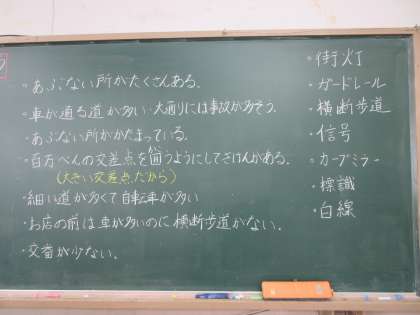 ・あぶない所がたくさんある。
・車が通る道が多い・大通りには事故が多そう。
・あぶない所がかたまっている。
・百万べんの交差点を向うようにしてきけんがある。
(大きい交差点だから)
・細い道が多くて自転車が多い
・お店の前は車が多いのに横断歩道がない。
・交番が少ない。
・街灯
・ガードレール
・横断歩道
・信号
・カーブミラー
・標識
・白線